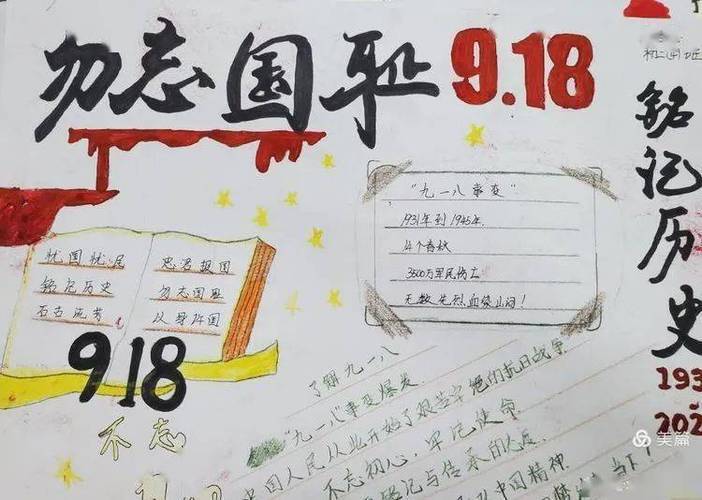 勿忘国耻 9.18
铭记历史
193
202
"九一八事变"
1931年到1945年.
14个春秋
3500万军民伤亡
无数先烈血染山河!
忧国忧民
铭记历史
忠君报国
勿忘国耻
以身许国
918
不忘
了解九一八
"九一八"事变爆发.
中国人民从此开始了艰苦卓绝的抗日战争
不忘初心, 牢记使命
铭记与传承的
中国精神
当下!
美篇